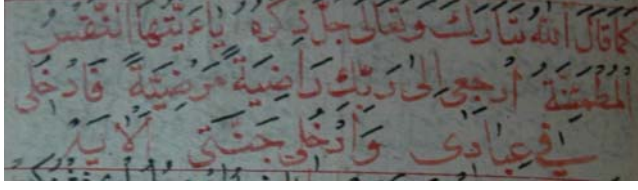 كَمَا قَالَ اللهُ تَبَارَكَ وَتَعَالَى جَلَّ ذِكْرُهُ يَاءَيَّتُهَا النَّفْسُ
الْمُطْمَئِنَّةُ ارْجِعِي اِلَى رَبِّكِ رَاضِيَةً مَرْضِيَّةً فَادْخُلِى
فِي عِبَادِى وَادْخُلِى جَنَّتِى الْاٰيَة